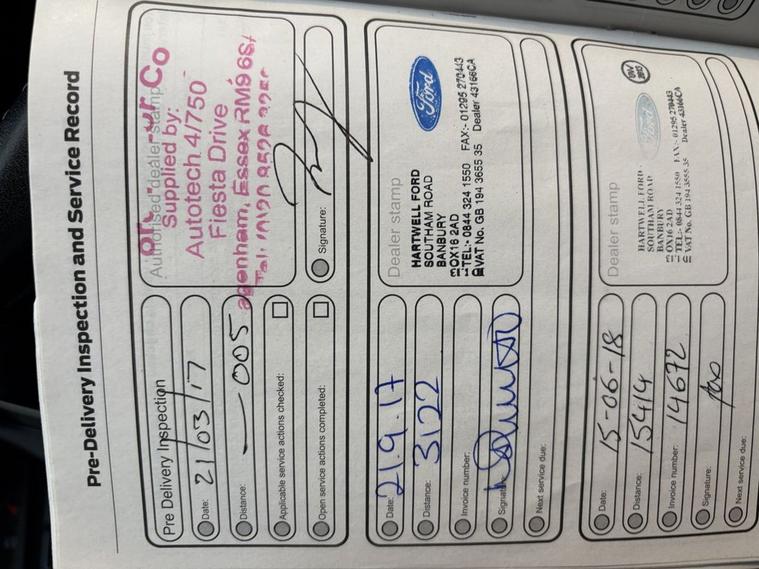 Pre-Delivery Inspection and Service Record
Pre Delivery Inspection
Date: 21/03/17
Distance: — 005
Applicable service actions checked:
Open service actions completed:
Authorised dealer stamp
Supplied by:
Autotech 4/750
Fiesta Drive
Essex RM96S
Signature:
Date: 21.9.17
Distance: 3122
Invoice number:
Next service due:
Dealer stamp
Ford
HARTWELL FORD
SOUTHAM ROAD
BANBURY
OX16 2AD
TEL:- 0844 324 1550 FAX:- 01295 270443
VAT No. GB 194 3655 35 Dealer 43166CA
Date: 15-06-18
Distance: 15414
Invoice number: 14672
Signature:
Next service due:
Dealer stamp
Ford
HARTWELL FORD
SOUTHAM ROAD
BANBURY
OX16 2AD
TEL:- 0844 324 1550 FAX:- 01295 270443
VAT No. GB 194 3555 35 Dealer 43166CA